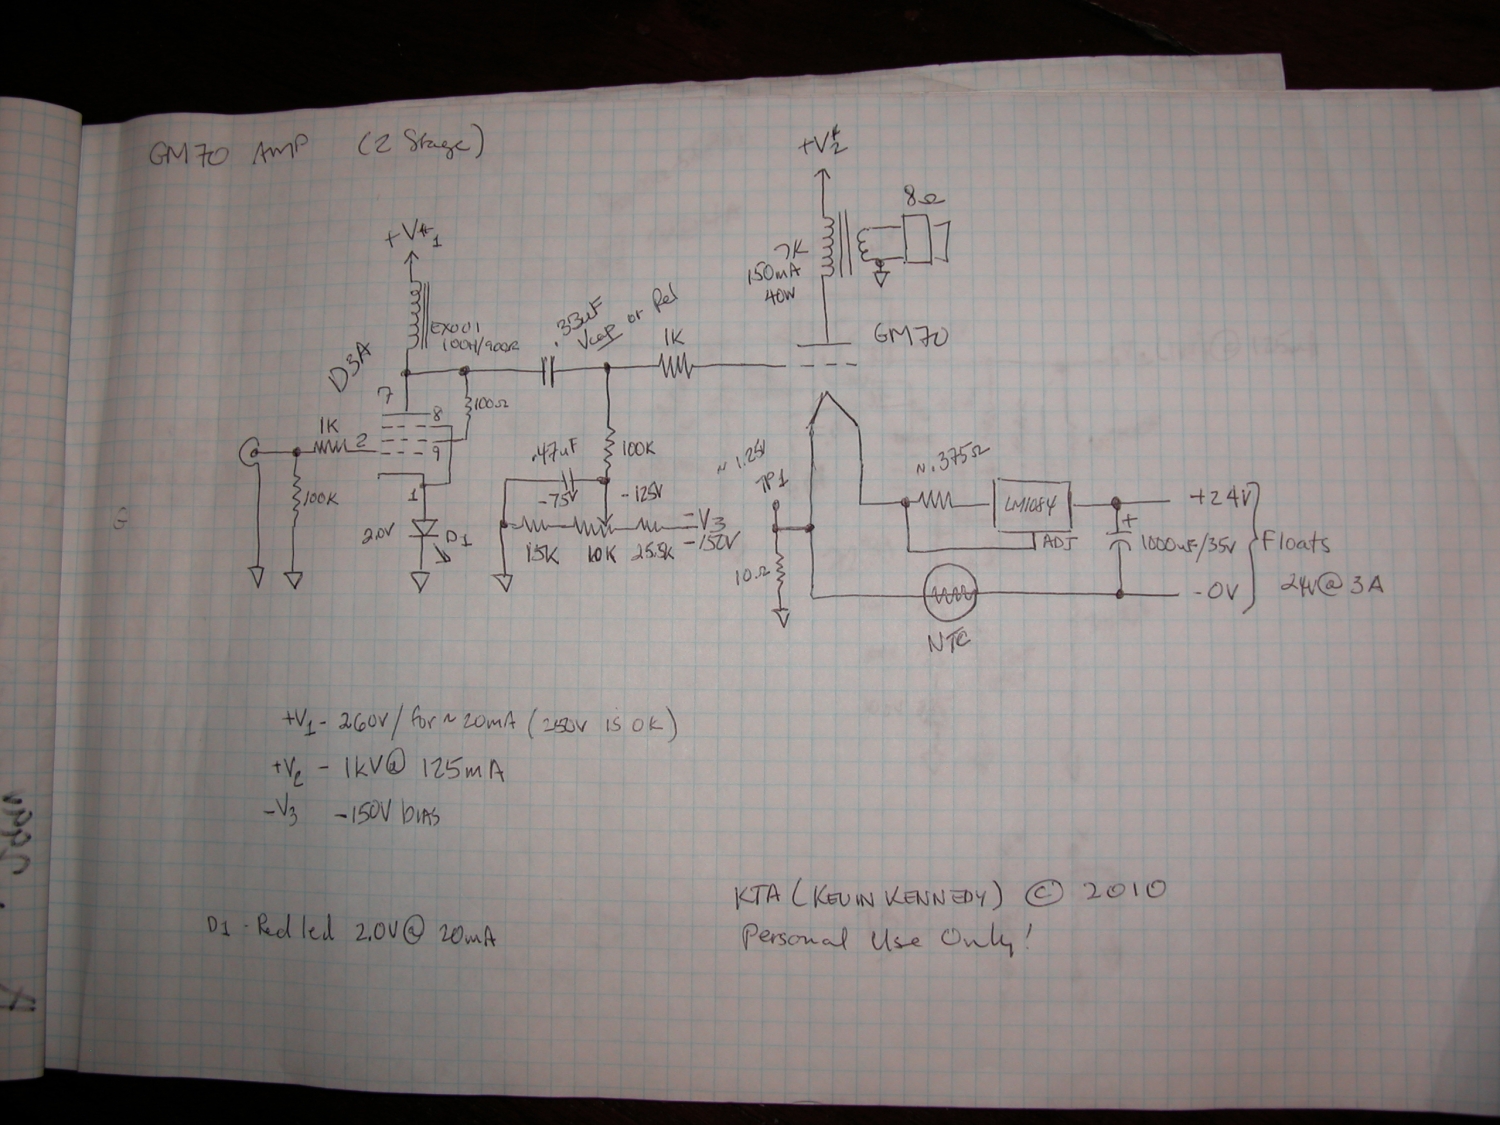 GM70 AMP (2 Stage)
+V2
8Ω
+V1
7K
150mA
40W
EX001
100H/900Ω
.33uF
Vcap or Rel
1K
GM70
D3A
7
8
100Ω
1K
2
9
.47uF
100K
~1.25V
~.375Ω
100K
1
-75V
-125V
TP1
LM1084
+24V
2.0V
D1
-V3
-150V
15K
10K
25.5K
ADJ
+
1000uF/35V
Floats
10Ω
-0V
24V@3A
NTC
+V1 - 260V/for ~20mA (250V is OK)
+V2 - 1KV@ 125mA
-V3 -150V bias
KTA (KEVIN KENNEDY) © 2010
D1 - Red led 2.0V@ 20mA
Personal Use Only!